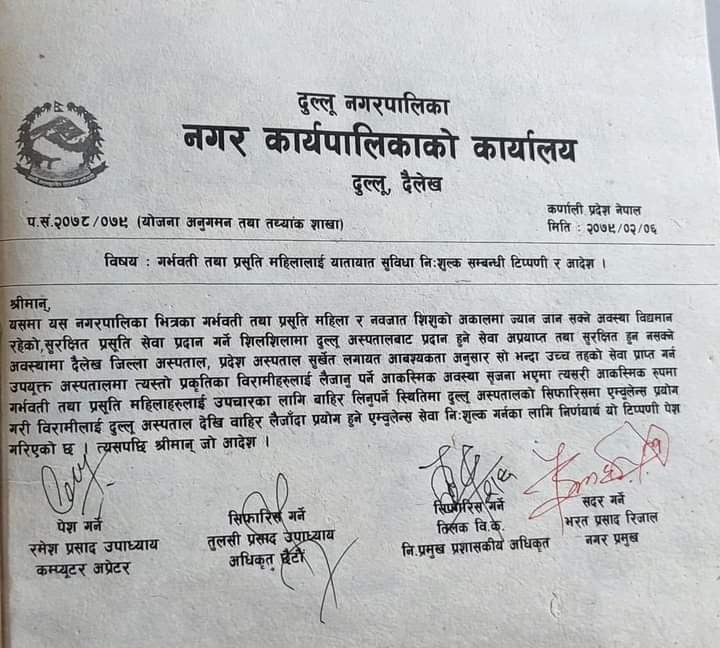 दुल्लू नगरपालिका
नगर कार्यपालिकाको कार्यालय
दुल्लू, दैलेख
कर्णाली प्रदेश नेपाल
प.सं.२०७८/०७९ (योजना अनुगमन तथा तथ्यांक शाखा)
मिति : २०७९/०२/०६
विषय : गर्भवती तथा प्रसूति महिलालाई यातायात सुविधा निःशुल्क सम्बन्धी टिप्पणी र आदेश ।
श्रीमान्,
यसमा यस नगरपालिका भित्रका गर्भवती तथा प्रसूति महिला र नवजात शिशुको अकालमा ज्यान जान सक्ने अवस्था विद्यमान
रहेको,सुरक्षित प्रसूति सेवा प्रदान गर्ने शिलशिलामा दुल्लू अस्पतालबाट प्रदान हुने सेवा अप्रयाप्त तथा सुरक्षित हुन नसक्ने
अवस्थामा दैलेख जिल्ला अस्पताल, प्रदेश अस्पताल सुर्खेत लगायत आबश्यकता अनुसार सो भन्दा उच्च तहको सेवा प्राप्त गर्न
उपयुक्त अस्पतालमा त्यस्तो प्रकृतिका विरामीहरुलाई लैजानु पर्ने आकस्मिक अवस्था सृजना भएमा त्यसरी आकस्मिक रुपमा
गर्भवती तथा प्रसूति महिलाहरुलाई उपचारका लागि बाहिर लिनुपर्ने स्थितिमा दुल्लू अस्पतालको सिफारिसमा एम्वुलेन्स प्रयोग
गरी विरामीलाई दुल्लू अस्पताल देखि वाहिर लैजाँदा प्रयोग हुने एम्वुलेन्स सेवा निःशुल्क गर्नका लागि निर्णयार्थ यो टिप्पणी पेश
गरिएको छ । त्यसपछि श्रीमान् जो आदेश ।
पेश गर्ने
रमेश प्रसाद उपाध्याय
कम्प्यूटर अप्रेटर
सिफारिस गर्ने
तुलसी प्रसाद उपाध्याय
अधिकृत छैटौं
सिफारिस गर्ने
तिलक वि.के.
नि.प्रमुख प्रशासकीय अधिकृत
सदर गर्ने
भरत प्रसाद रिजाल
नगर प्रमुख